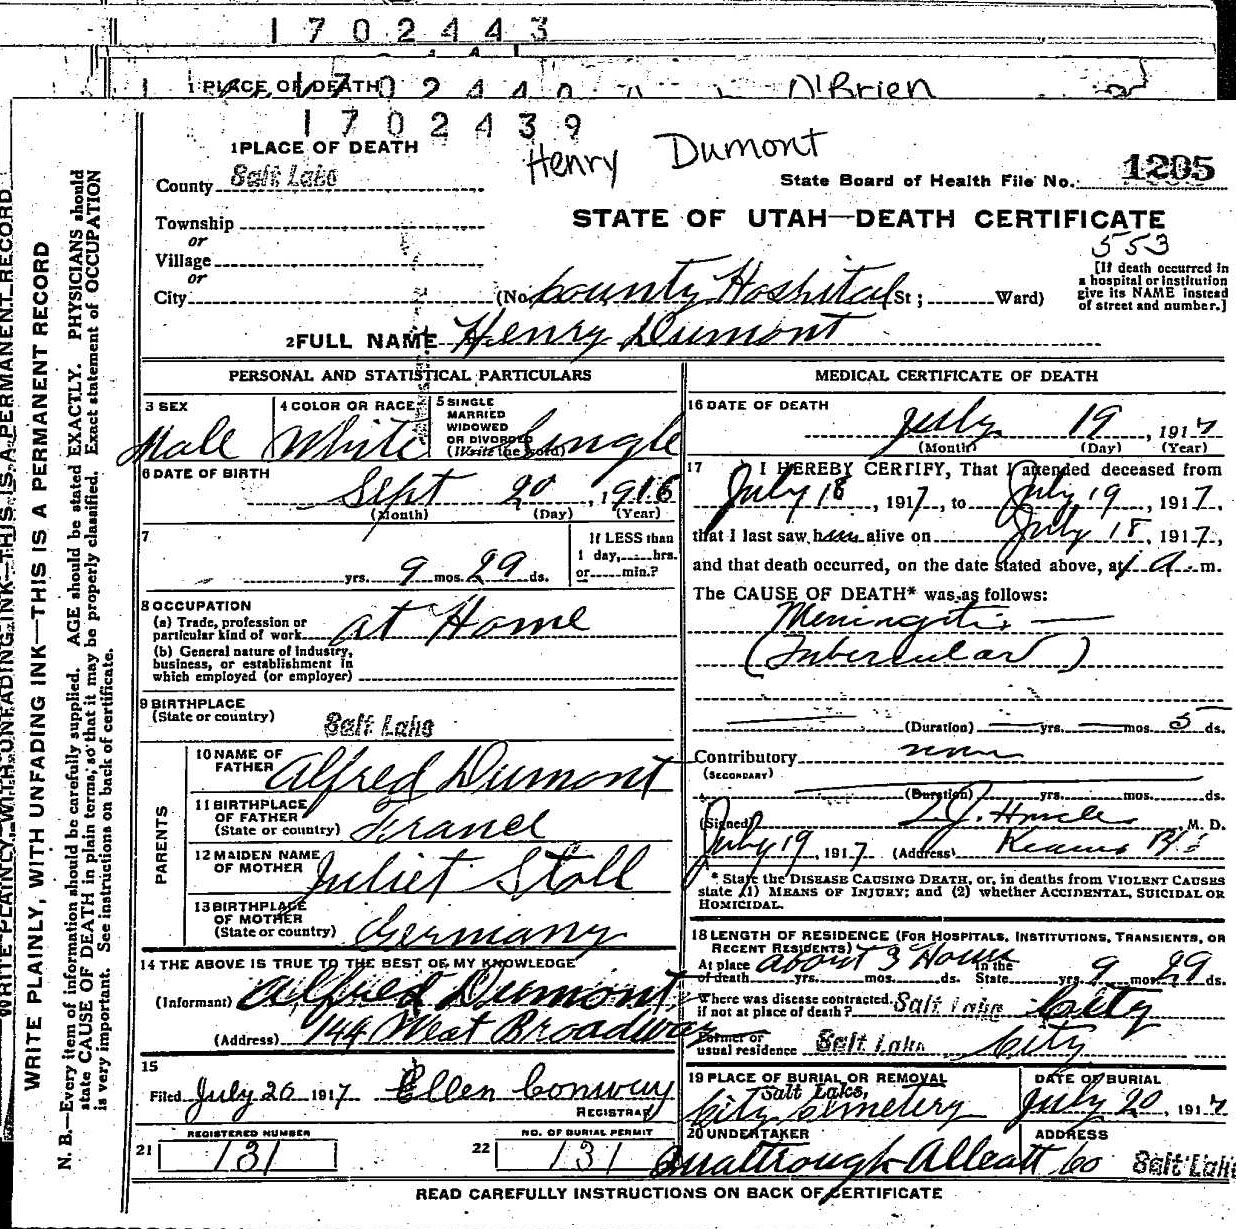 1 7 0 2 4 4 3
1 PLACE OF DEATH
O'Brien
1 7 0 2 4 3 9
Henry Dumont
1 PLACE OF DEATH
County Salt Lake
State Board of Health File No. 1205
Township
STATE OF UTAH—DEATH CERTIFICATE
or
553
Village
or
City (No. County Hospital St; Ward)
[If death occurred in
a hospital or institution
give its NAME instead
of street and number.]
2 FULL NAME Henry Dumont
PERSONAL AND STATISTICAL PARTICULARS
3 SEX
Male
4 COLOR OR RACE
White
5 SINGLE
MARRIED
WIDOWED
OR DIVORCED
(Write the word)
Single
6 DATE OF BIRTH
Sept 20, 1916
(Month) (Day) (Year)
7
yrs. 9 mos. 29 ds.
If LESS than
1 day, hrs.
or min.?
8 OCCUPATION
(a) Trade, profession or
particular kind of work at Home
(b) General nature of industry,
business, or establishment in
which employed (or employer)
9 BIRTHPLACE
(State or country) Salt Lake
PARENTS
10 NAME OF
FATHER Alfred Dumont
11 BIRTHPLACE
OF FATHER
(State or country) France
12 MAIDEN NAME
OF MOTHER Juliet Stoll
13 BIRTHPLACE
OF MOTHER
(State or country) Germany
14 THE ABOVE IS TRUE TO THE BEST OF MY KNOWLEDGE
(Informant) Alfred Dumont
(Address) 744 West Broadway
15
Filed July 20 1917 Ellen Conway
REGISTRAR
REGISTERED NUMBER
21 131
NO. OF BURIAL PERMIT
22 131
MEDICAL CERTIFICATE OF DEATH
16 DATE OF DEATH
July 19, 1917
(Month) (Day) (Year)
17 I HEREBY CERTIFY, That I attended deceased from
July 18, 1917, to July 19, 1917,
that I last saw him alive on July 18, 1917,
and that death occurred, on the date stated above, at 1 A m.
The CAUSE OF DEATH* was as follows:
Meningitis
(Tubercular)
(Duration) yrs. mos. 5 ds.
Contributory none
(SECONDARY)
(Duration) yrs. mos. ds.
(Signed) M. D.
July 19, 1917 (Address) Kearns
* State the DISEASE CAUSING DEATH, or, in deaths from VIOLENT CAUSES
state (1) MEANS OF INJURY; and (2) whether ACCIDENTAL, SUICIDAL OR
HOMICIDAL.
18 LENGTH OF RESIDENCE (FOR HOSPITALS, INSTITUTIONS, TRANSIENTS, OR
RECENT RESIDENTS)
At place of death about 3 Hours yrs. mos. ds. In the State yrs. 9 mos. 29 ds.
Where was disease contracted.
if not at place of death? Salt Lake City
Former or
usual residence Salt Lake City
19 PLACE OF BURIAL OR REMOVAL
Salt Lake,
City Cemetery
DATE OF BURIAL
July 20, 1917
20 UNDERTAKER
Alleatt Co
ADDRESS
Salt Lake
READ CAREFULLY INSTRUCTIONS ON BACK OF CERTIFICATE
WRITE PLAINLY, WITH UNFADING INK—THIS IS A PERMANENT RECORD
WRITE PLAINLY, WITH UNFADING INK—THIS IS A PERMANENT RECORD
N. B.—Every item of information should be carefully supplied. AGE should be stated EXACTLY. PHYSICIANS should
state CAUSE OF DEATH in plain terms, so that it may be properly classified. Exact statement of OCCUPATION
is very important. See instructions on back of certificate.